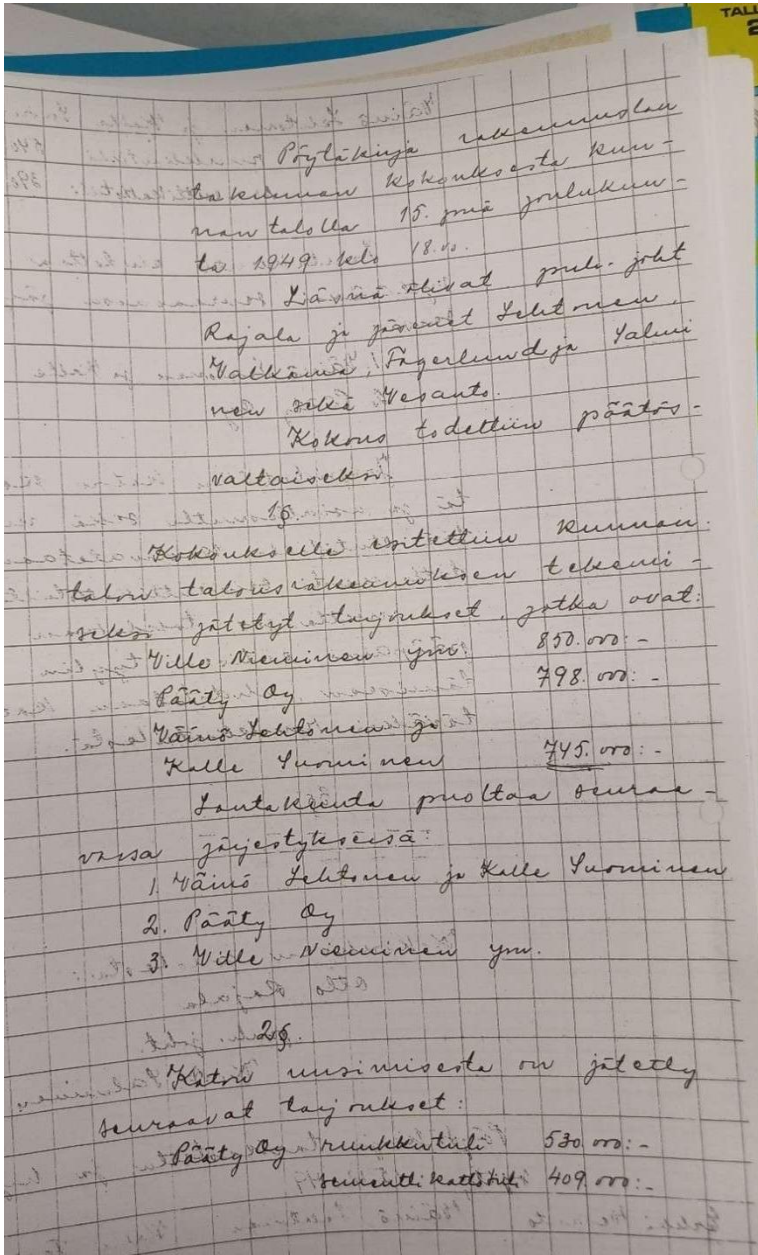 TALL
2
Pöytäkirja rakennuslau
takunnan kokouksesta kun-
nan talolla 15. pnä joulukuu-
ta 1949 klo 18.00.
Läsnä olivat puh. joht
Rajala ja jäsenet Lehtonen,
Valkama, Fagerlund ja Salmi
nen sekä Vesanto.
Kokous todettiin päätös-
valtaiseksi.
1§.
Kokoukselle esitettiin kunnan
talon talousrakennuksen tekemi-
seksi jätetyt tarjoukset, jotka ovat:
Ville Nieminen ym. 850.000:-
Pääty Oy 798.000:-
Väinö Lehtonen ja
Kalle Suominen 745.000:-
Lautakunta puoltaa seuraa-
vassa järjestyksessä:
1. Väinö Lehtonen ja Kalle Suominen
2. Pääty Oy
3. Ville Nieminen ym.
2§.
Katon uusimisesta on jätetty
seuraavat tarjoukset:
Pääty Oy ruukkutiili 530.000:-
sementtikattotiili 409.000:-